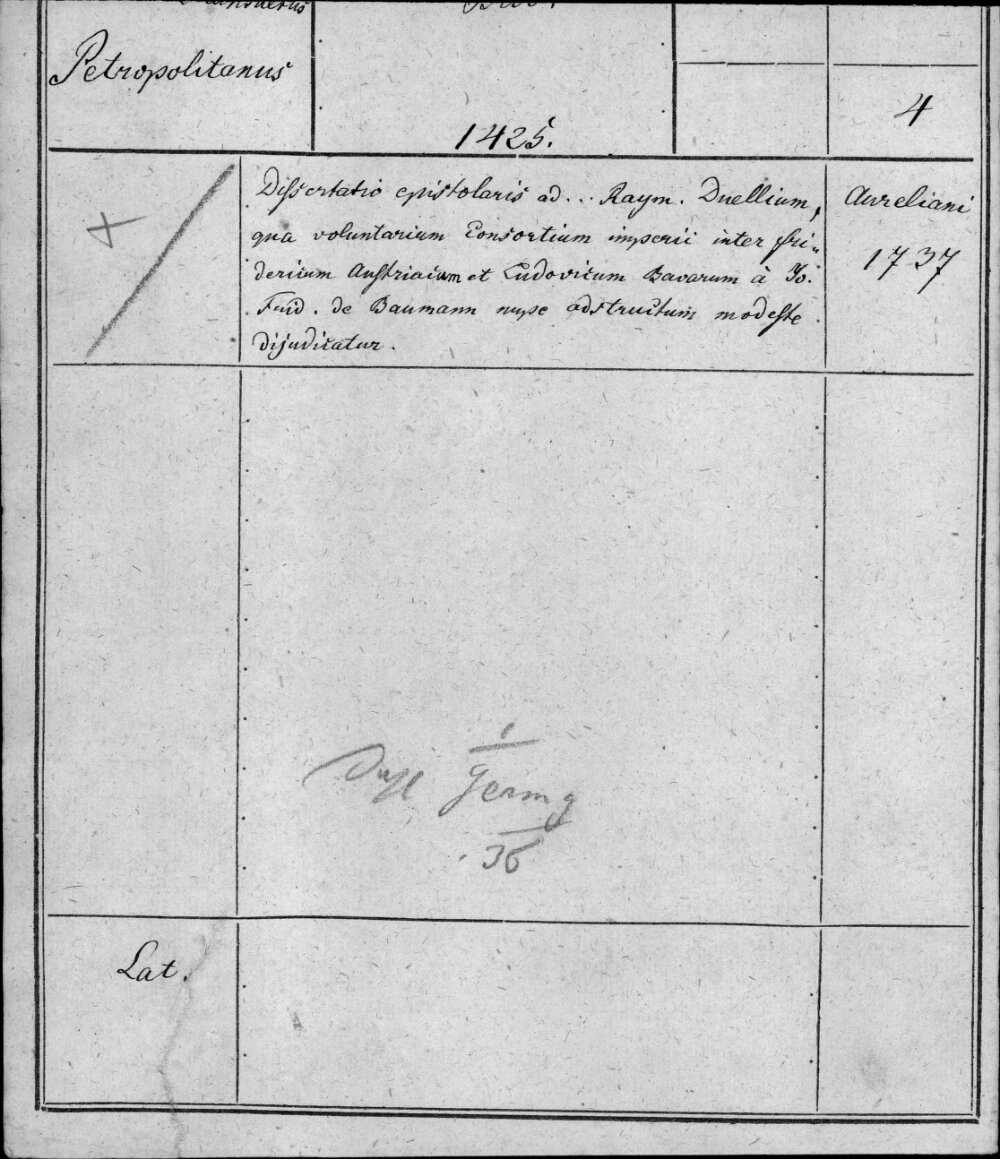 Petropolitanus
1425.
4
Dissertatio epistolaris ad... Raym. Duellium,
qua voluntarium Consortium imperii inter Fri-
dericum Austriacum et Ludovicum Bavarum à Jo.
Frid. de Baumann nupe adstructum modeste
dijudicatur.
Aureliani
1737
1
Germ g
36
Lat.